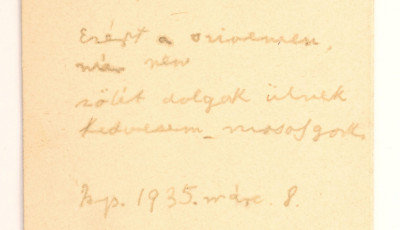 Ezért a szivemen,
már nem
sötét dolgok ülnek
kedvesem – mosolygok.
Bp. 1935. márc. 8.